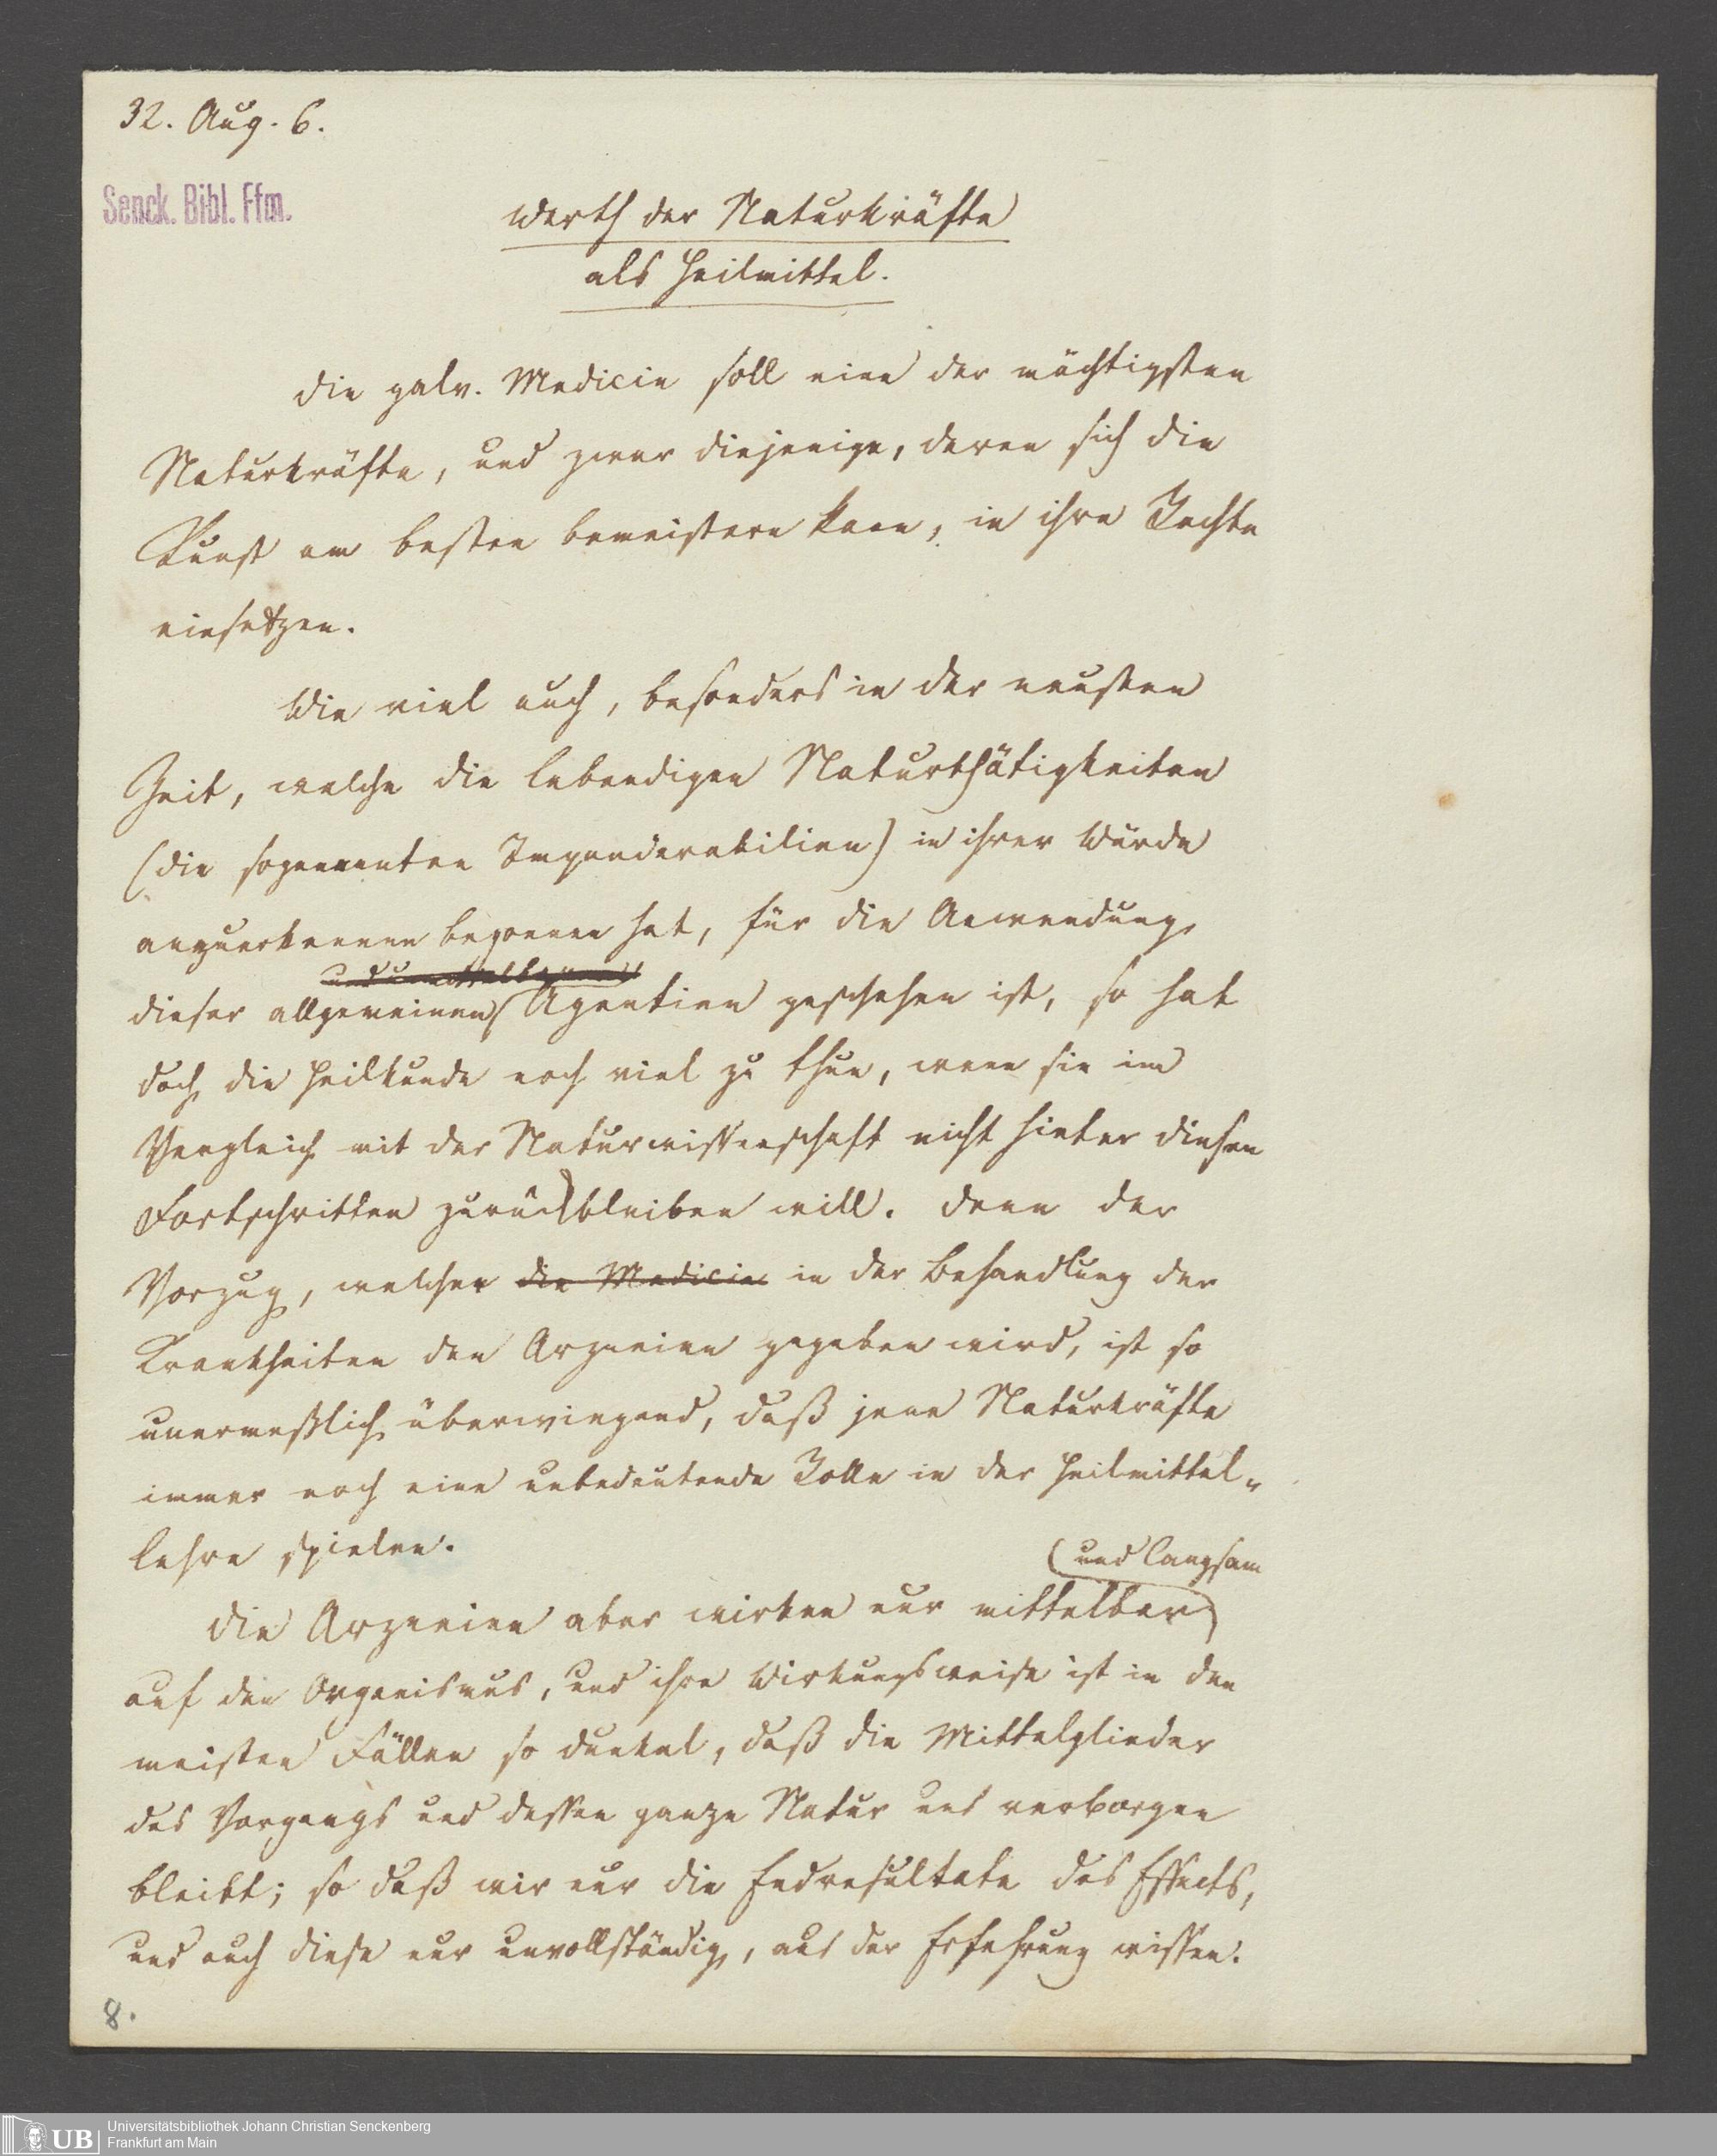 32. Aug. 6.
Senck. Bibl. Ffm.
Werth der Naturkräfte
als Heilmittel.
Die galv. Medicin soll eine der mächtigsten
Naturkräfte, und zwar diejenige, deren sich die
Kunst am besten bemeistern kann, in ihre Rechte
einsetzen.
Wie viel auch, besonders in der neusten
Zeit, welche die lebendigen Naturthätigkeiten
(die sogenannten Imponderabilien) in ihrer Würde
anzuerkennen begonnen hat, für die Anwendung
dieser allgemeinen Agentien geschehen ist, so hat
doch die Heilkunde noch viel zu thun, wenn sie im
Vergleich mit der Naturwissenschaft nicht hinter diesen
Fortschritten zurückbleiben will. Denn der
Vorzug, welcher die Medicin in der Behandlung der
Krankheiten den Arzneien gegeben wird, ist so
unermeßlich überwiegend, daß jene Naturkräfte
immer noch eine unbedeutende Rolle in der Heilmittel-
lehre spielen.
und langsam
Die Arzneien aber wirken nur mittelbar
auf den Organismus, und ihre Wirkungsweise ist in den
meisten Fällen so dunkel, daß die Mittelglieder
des Vorgangs und dessen ganze Natur uns verborgen
bleibt; so daß wir nur die Endresultate des Effects,
und auch diese nur unvollständig, aus der Erfahrung wissen.
8.
UB Universitätsbibliothek Johann Christian Senckenberg
Frankfurt am Main